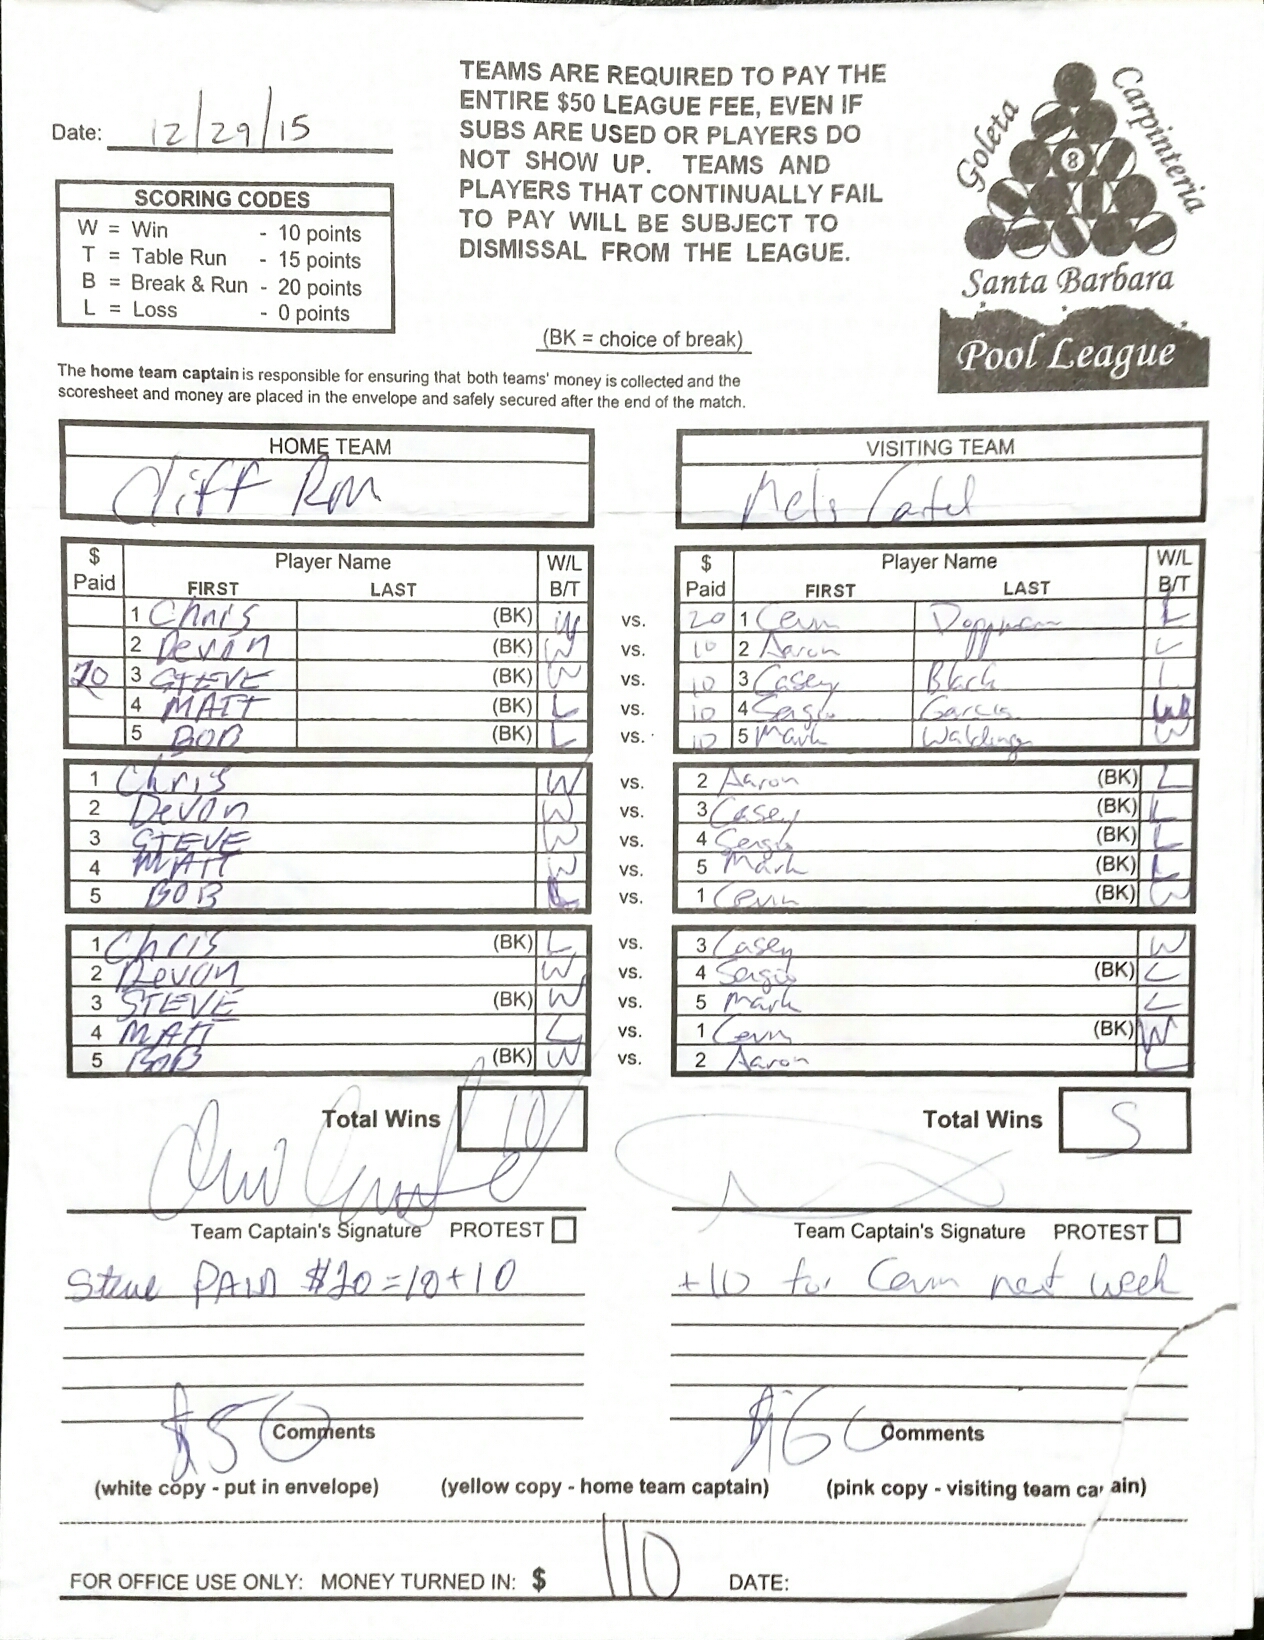 TEAMS ARE REQUIRED TO PAY THE
ENTIRE $50 LEAGUE FEE, EVEN IF
SUBS ARE USED OR PLAYERS DO
NOT SHOW UP. TEAMS AND
PLAYERS THAT CONTINUALLY FAIL
TO PAY WILL BE SUBJECT TO
DISMISSAL FROM THE LEAGUE.
Goleta
Carpinteria
8
Santa Barbara
Pool League
Date: 12/29/15
SCORING CODES
W = Win - 10 points
T = Table Run - 15 points
B = Break & Run - 20 points
L = Loss - 0 points
(BK = choice of break)
The home team captain is responsible for ensuring that both teams' money is collected and the
scoresheet and money are placed in the envelope and safely secured after the end of the match.
HOME TEAM VISITING TEAM
Cliff Rm Mels Cartel
$ Paid Player Name W/L $ Paid Player Name W/L
FIRST LAST B/T FIRST LAST B/T
1 Chris (BK) W vs. 20 1 Cevin L
2 Devon (BK) W vs. 10 2 Aaron L
20 3 STEVE (BK) W vs. 10 3 Casey Black L
4 MATT (BK) L vs. 10 4 Sergio Garcia W
5 BOB (BK) L vs. 10 5 Mark W
1 Chris W vs. 2 Aaron (BK) L
2 Devon W vs. 3 Casey (BK) L
3 STEVE W vs. 4 Sergio (BK) L
4 MATT W vs. 5 Mark (BK) L
5 BOB L vs. 1 Cevin (BK) W
1 Chris (BK) L vs. 3 Casey W
2 Devon W vs. 4 Sergio (BK) L
3 STEVE (BK) W vs. 5 Mark L
4 MATT L vs. 1 Cevin (BK) W
5 BOB (BK) W vs. 2 Aaron L
Total Wins 10 Total Wins 5
Team Captain's Signature PROTEST Team Captain's Signature PROTEST
Steve PAID $20=10+10 +10 for Cevin next week
$50 Comments $60 Comments
(white copy - put in envelope) (yellow copy - home team captain) (pink copy - visiting team ca ain)
FOR OFFICE USE ONLY: MONEY TURNED IN: $ 110 DATE: